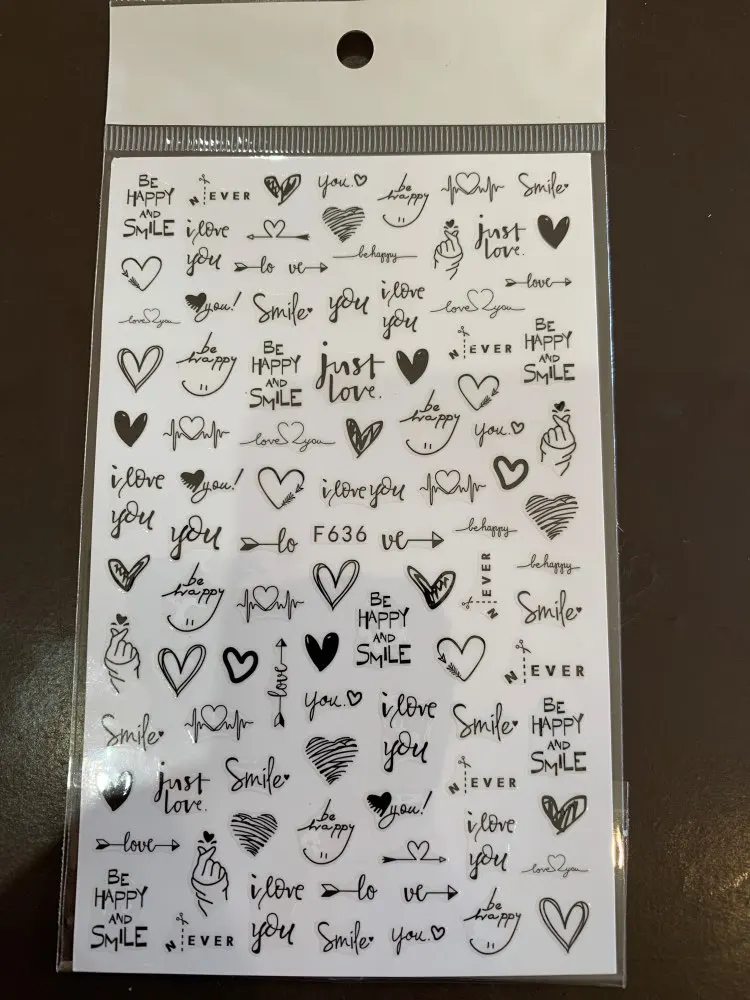 BE
HAPPY
AND
SMILE
N EVER
you.
be
happy
Smile
i love
you
be happy
just
love.
lo ve
love
love you
you!
Smile
you
i love
you
be
happy
BE
HAPPY
AND
SMILE
just
love.
N EVER
BE
HAPPY
AND
SMILE
love you
be
happy
you.
i love
you
you!
i love you
be happy
you
lo
F636
ve
be happy
be
happy
N EVER
Smile
BE
HAPPY
AND
SMILE
love
N EVER
you.
i love
you
Smile
Smile
BE
HAPPY
AND
SMILE
just
love.
Smile
N EVER
be
happy
you!
i love
you
love
love you
BE
HAPPY
AND
SMILE
N EVER
i love
you
lo ve
Smile
you.
be
happy